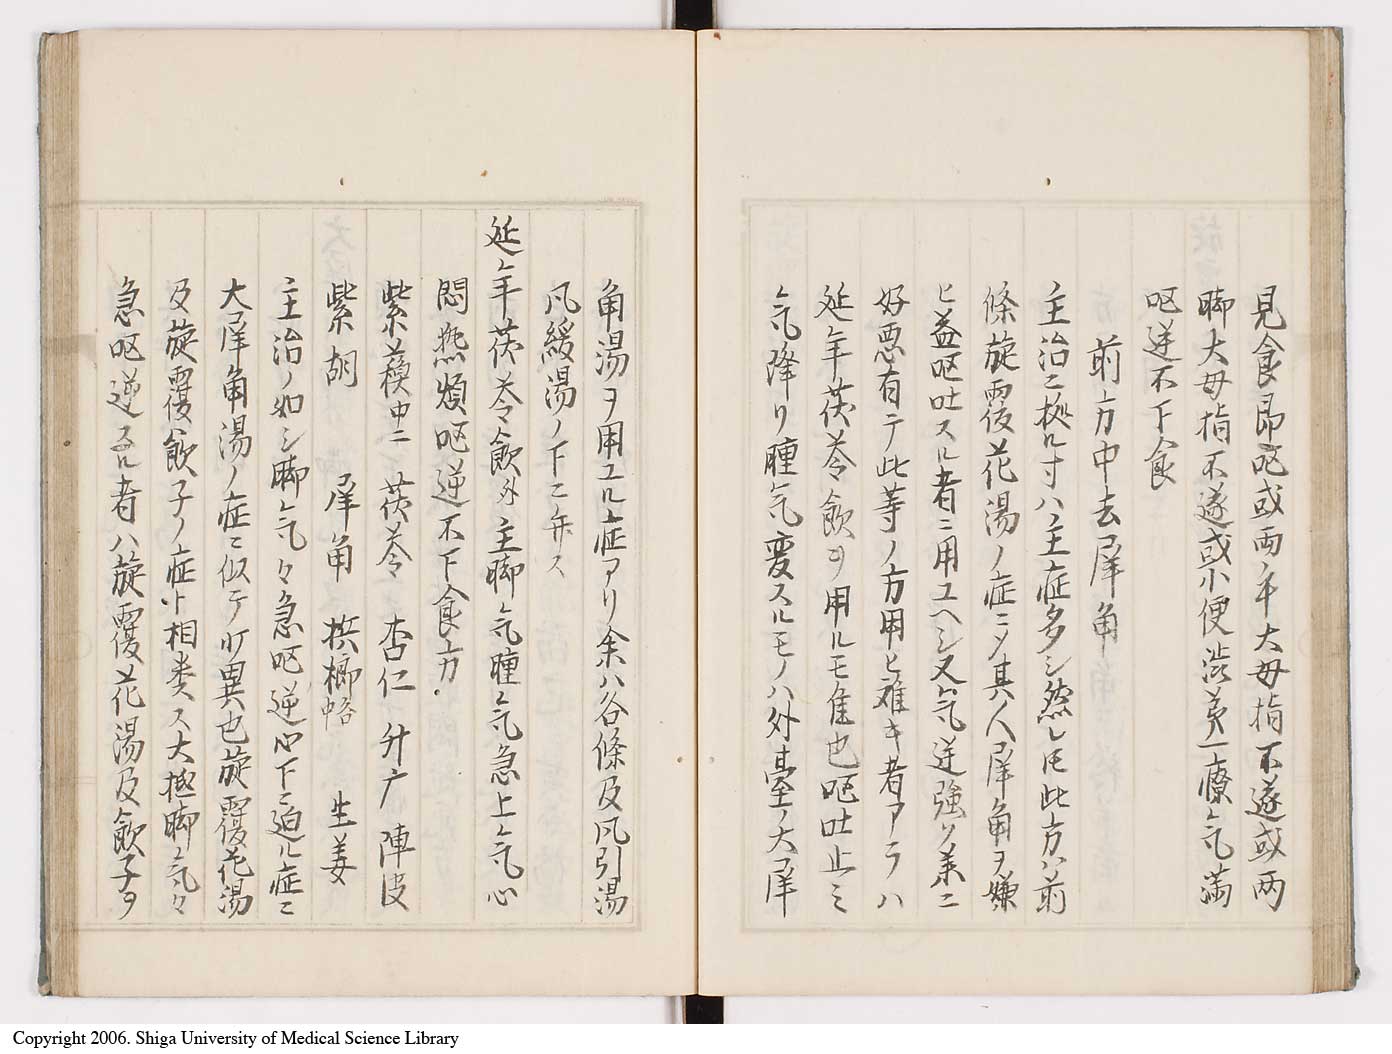 見食即呕或両手大毋指不遂或両
脚大毋指不遂或小便渋羙一療气満
呕逆不下食
前方中去犀角
主治ニ拠ル寸ハ主症多シ然レ𪜈此方ハ前
條旋覆花湯ノ症ニ〆其人犀角ヲ嫌
ヒ益呕吐スル者ニ用ユヘシ又气逆強ク薬ニ
好悪有テ此等ノ方用ヒ難キ者アラハ
延年茯苓飲ヲ用ルモ隹也呕吐止ミ
气降リ腫气変スルモノハ外䑓ノ大犀
角湯ヲ用ユル症アリ余ハ谷條及凨引湯
凨緩湯ノ下ニ弁ス
延年茯苓飲外主脚气腫气急上气心
悶熱煩呕逆不下食方
紫蘓中ニ 茯苓ニ 杏仁 升广 陳皮
紫胡 犀角 槟榔 生姜
主治ノ如シ脚气々急呕逆心下ニ迫ル症ニ
大犀角湯ノ症ニ似テ少異也旋覆花湯
及旋覆飲子ノ症ト相类ス大概脚气々
急呕逆スル者ハ旋覆花湯及飲子ヲ
Copyright 2006. Shiga University of Medical Science Library